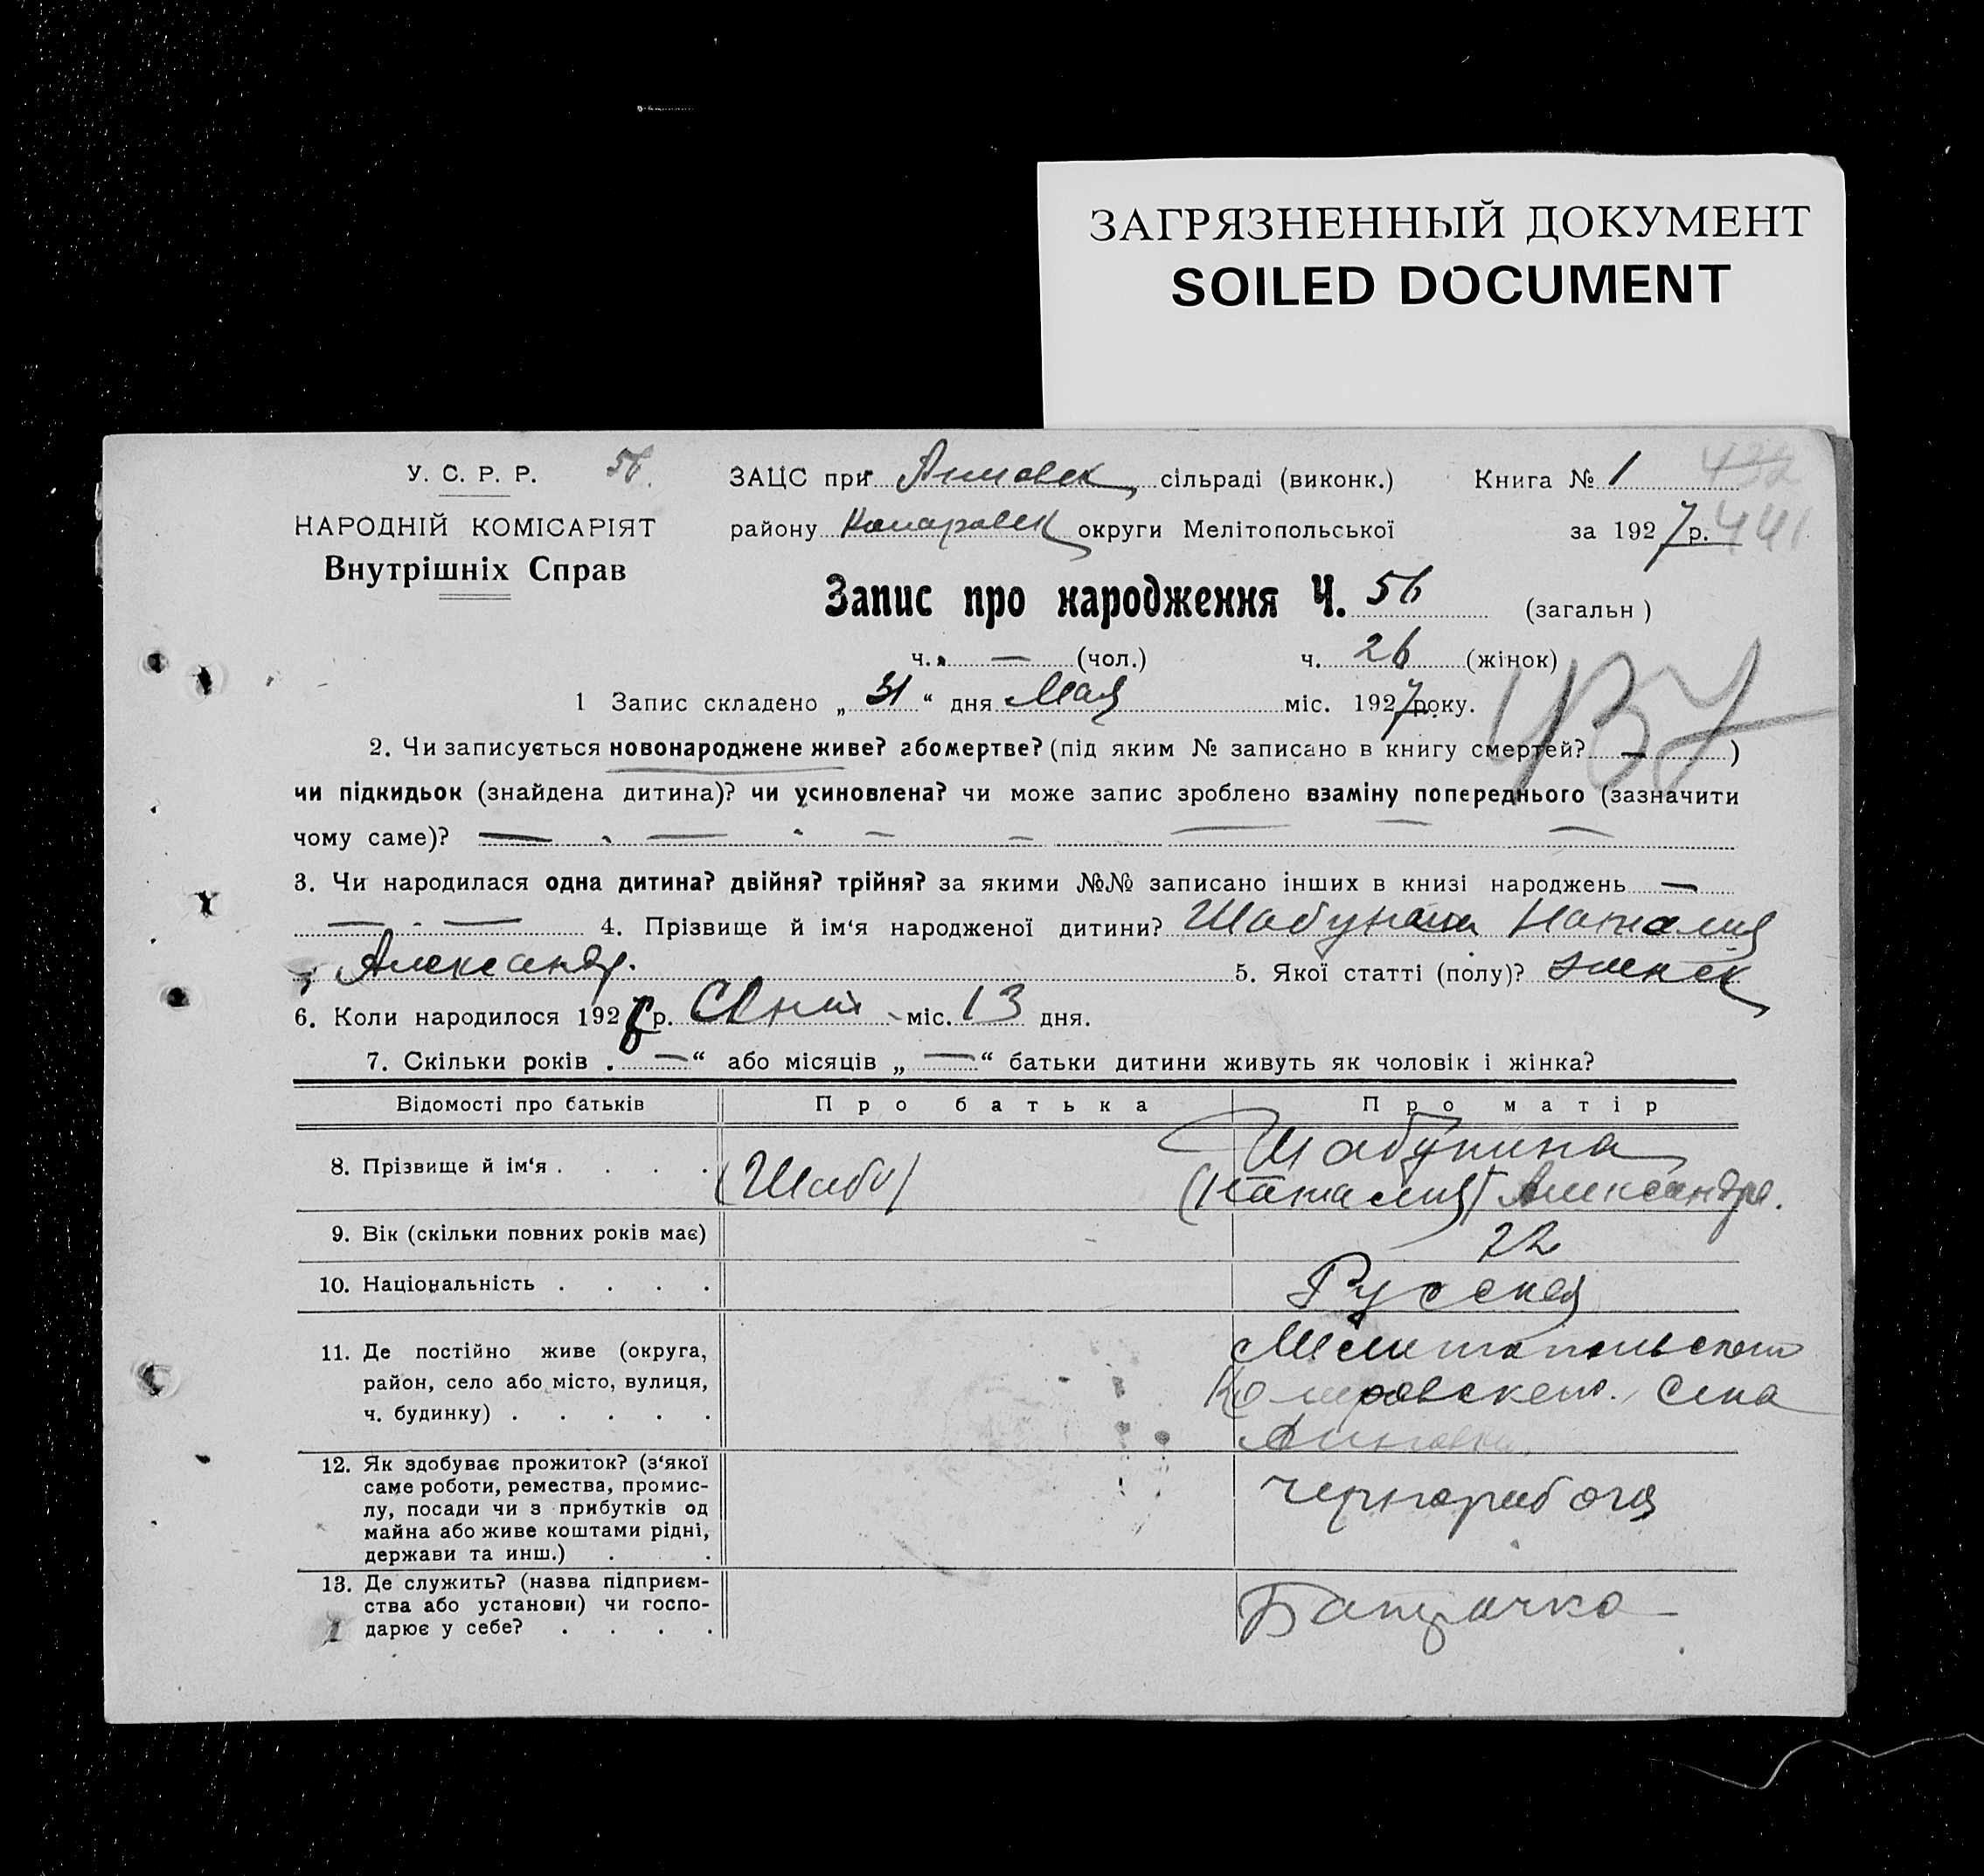 ЗАГРЯЗНЕННЫЙ ДОКУМЕНТ
SOILED DOCUMENT
У. С. Р. Р. 56. ЗАЦС при сільраді (виконк.) Книга № 1 432
НАРОДНІЙ КОМІСАРІЯТ району округи Мелітопольської за 1927 р. 441
Внутрішніх Справ
Запис про народження Ч. 56 (загальн)
ч. — (чол.) ч. 26 (жінок)
437
1 Запис складено „ 31 “ дня Мая міс. 1927 року.
2. Чи записується новонароджене живе? або мертве? (під яким № записано в книгу смертей? — )
чи підкидьок (знайдена дитина)? чи усиновлена? чи може запис зроблено взаміну попереднього (зазначити
чому саме)? — — — — — — —
3. Чи народилася одна дитина? двійня? трійня? за якими №№ записано інших в книзі народжень —
— - — 4. Прізвище й ім‘я народженої дитини? Шабунина Наталия
Александр. 5. Якої статті (полу)? женск
6. Коли народилося 192 р. міс. 13 дня.
7. Скільки років . — “ або місяців „ — “ батьки дитини живуть як чоловік і жінка?
Відомості про батьків Про батька Про матір
8. Прізвище й ім‘я . . . . (Шабу) Шабунина
(Наталия) Александра.
9. Вік (скільки повних років має) 22
10. Національність . . . . Русская
11. Де постійно живе (округа, Мелитопольского
район, село або місто, вулиця, села
ч. будинку) . . . . .
12. Як здобуває прожиток? (з‘якої
саме роботи, ремества, промис- чернорабочая
лу, посади чи з прибутків од
майна або живе коштами рідні,
держави та инш.) . .
13. Де служить? (назва підприєм-
ства або установи) чи госпо- Батрачка
дарює у себе? . . . .